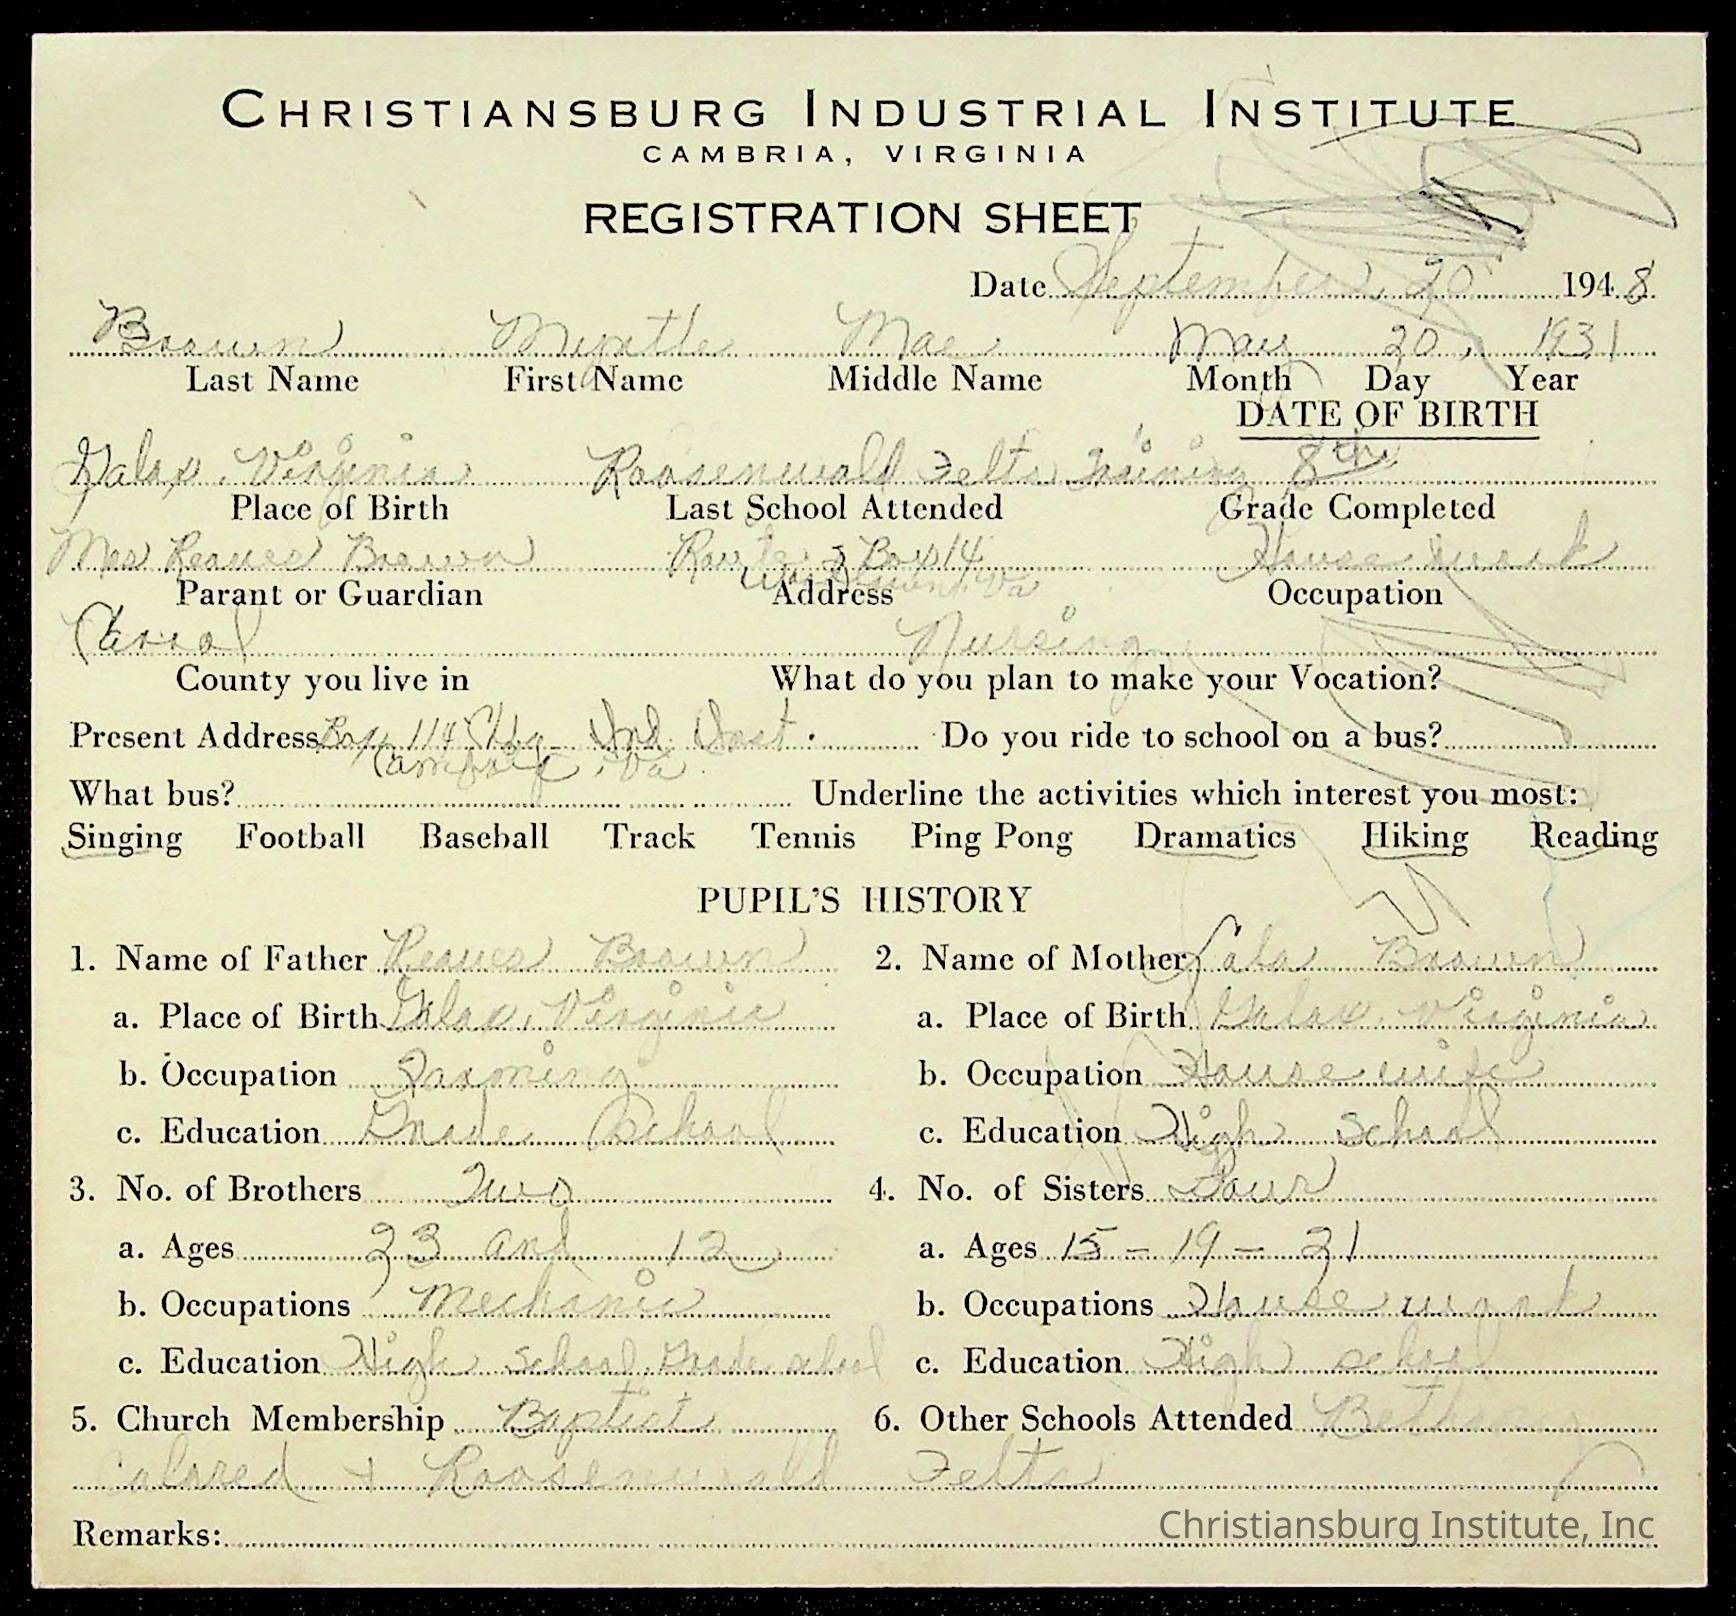 CHRISTIANSBURG INDUSTRIAL INSTITUTE
CAMBRIA, VIRGINIA
REGISTRATION SHEET
Date September 20 1948
Brown Myrtle Mae May 20, 1931
Last Name First Name Middle Name Month Day Year
DATE OF BIRTH
Galax, Virginia Roosenwald Felts Training 8th
Place of Birth Last School Attended Grade Completed
Mrs Reaves Brown Route 2 Box 14 House work
Va
Parant or Guardian Address Occupation
Carrol Nursing
County you live in What do you plan to make your Vocation?
Present Address Box 114 Chbg Ind. Inst. Do you ride to school on a bus?
Cambria, Va.
What bus? Underline the activities which interest you most:
Singing Football Baseball Track Tennis Ping Pong Dramatics Hiking Reading
PUPIL'S HISTORY
1. Name of Father Reaves Brown 2. Name of Mother Lala Brown
a. Place of Birth Galax, Virginia a. Place of Birth Galax, Virginia
b. Occupation Farming b. Occupation House wife
c. Education Grade School c. Education High School
3. No. of Brothers Two 4. No. of Sisters Four
a. Ages 23 and 12 a. Ages 15 - 19 - 21
b. Occupations Mechanic b. Occupations House work
c. Education High school, Grade school c. Education High school
5. Church Membership Baptist 6. Other Schools Attended Bethany
Colored + Roosenwald Felts
Remarks:
Christiansburg Institute, Inc